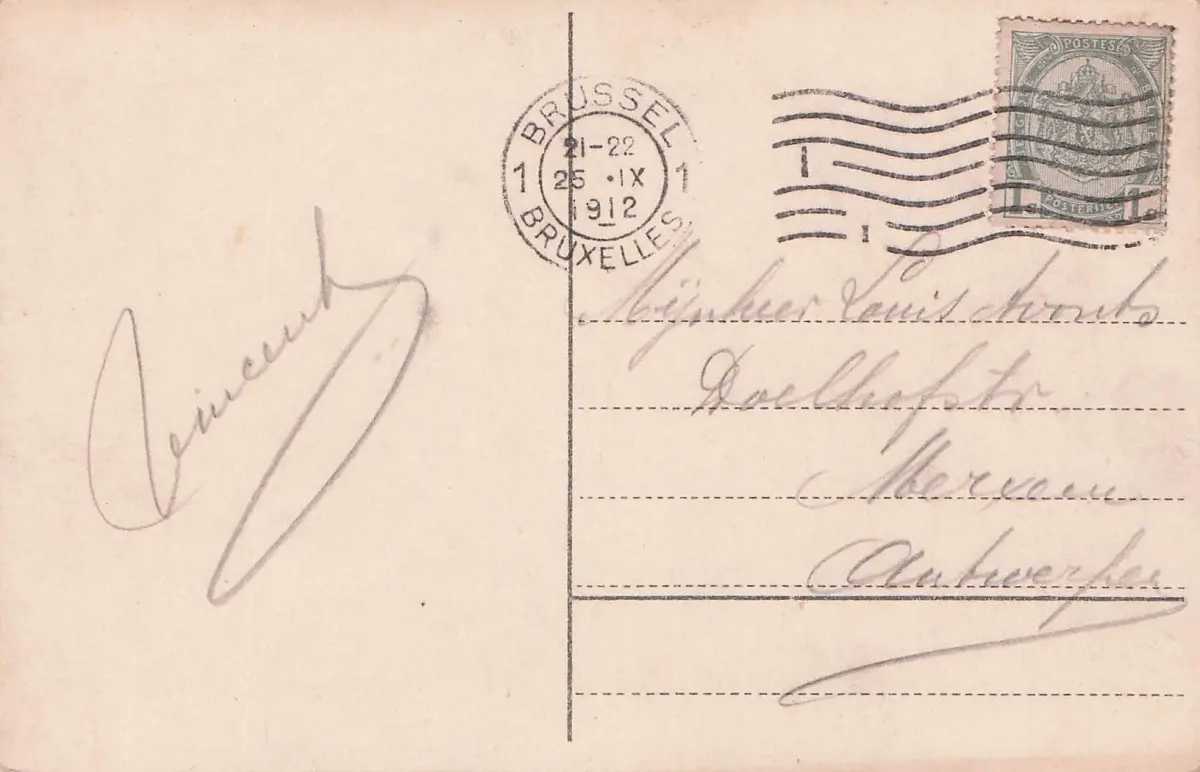 BRUSSEL
21-22
25 .IX
1912
1 1
BRUXELLES
1
1
POSTES
1c 1c
POSTERIJEN
Vincent
Mijnheer Louis Avonts
Doelhofstr.
Merxem
Antwerpen